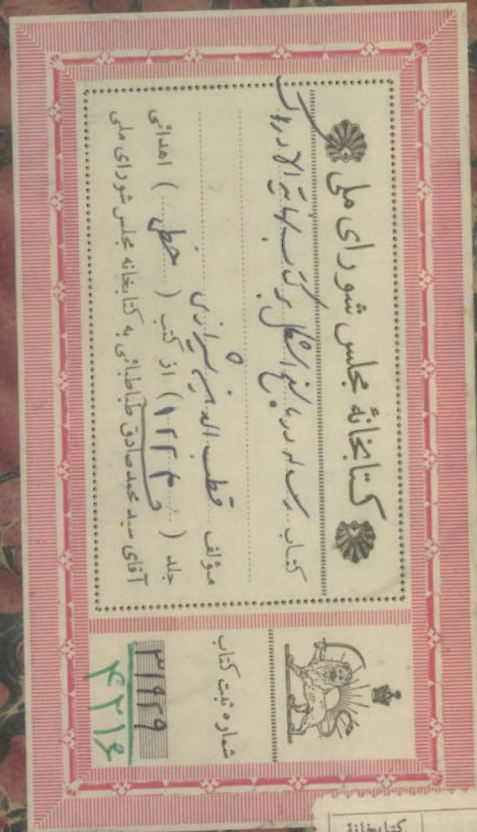 کتابخانهٔ مجلس شورای ملی
کتاب رساله در مواضع اشکال بر کتاب نهایة الادراک
مؤلف قطب الدین شیرازی
جلد ( ۱۲۲۴ ) از کتب ( خطی ) اهدائی
آقای سید محمد صادق طباطبائی به کتابخانه مجلس شورای ملی
شماره ثبت کتاب
۳۱۹۲۹
۴۲۱۶
کتابخانهٔ